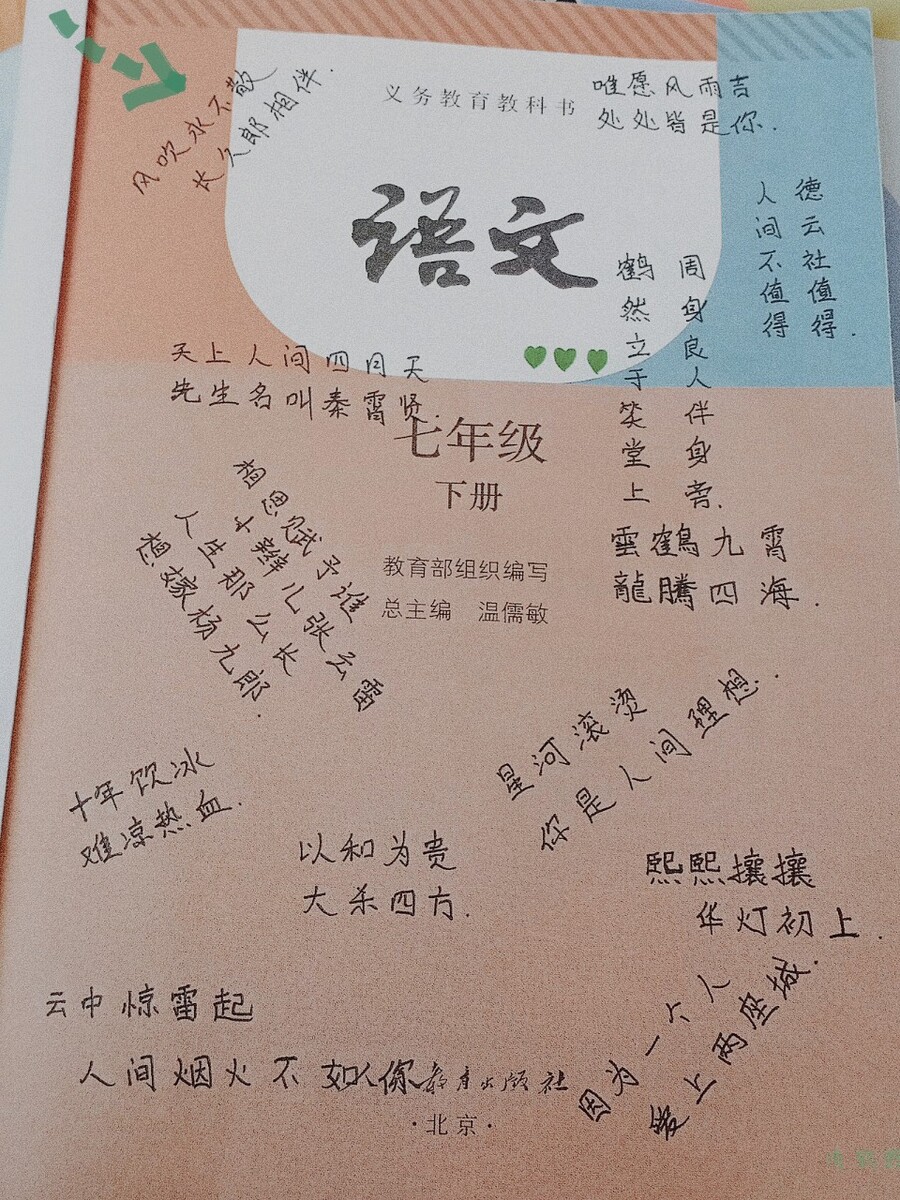 风吹永不散
长久郎相伴.
义务教育教科书
唯愿风雨吉
处处皆是你.
语文
德云社值得.
人间不值得
周身良人伴身旁.
鹤然立于笑堂上
天上人间四月天
先生名叫秦霄贤.
七年级
下册
相思赋予谁
十辫儿张云雷
人生那么长
想嫁杨九郎.
教育部组织编写
总主编 温儒敏
雲鶴九霄
龍騰四海.
星河滚烫
你是人间理想.
十年饮冰
难凉热血.
以和为贵
大杀四方.
熙熙攘攘
华灯初上.
云中惊雷起
人间烟火不如你
因为一个人
爱上两座城.
教育出版社
·北京·